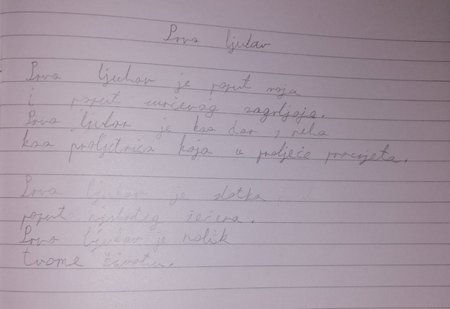 Prva ljubav
Prva ljubav je poput raja
i poput vrućeg zagrljaja.
Prva ljubav je kao dar s neba
kao proljetnica koja u proljeće procvjeta.
Prva ljubav je slatka
poput šećera.
Prva ljubav je nalik
tvome životu.